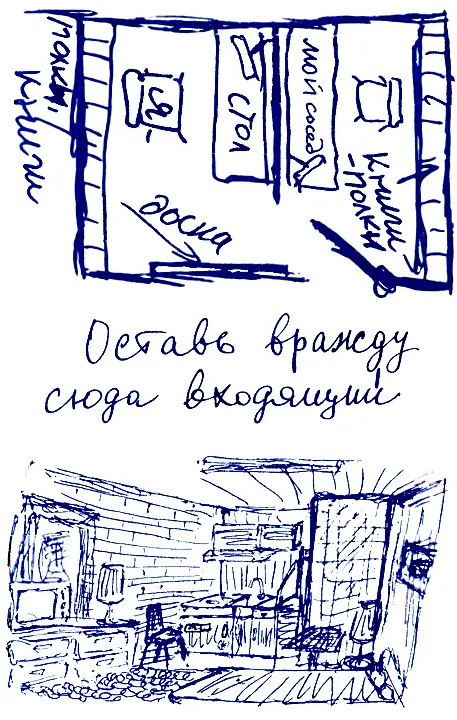 полки,
книги
Я
стол
мой сосед
книги
-полки
доска
Оставь вражду
сюда входящий